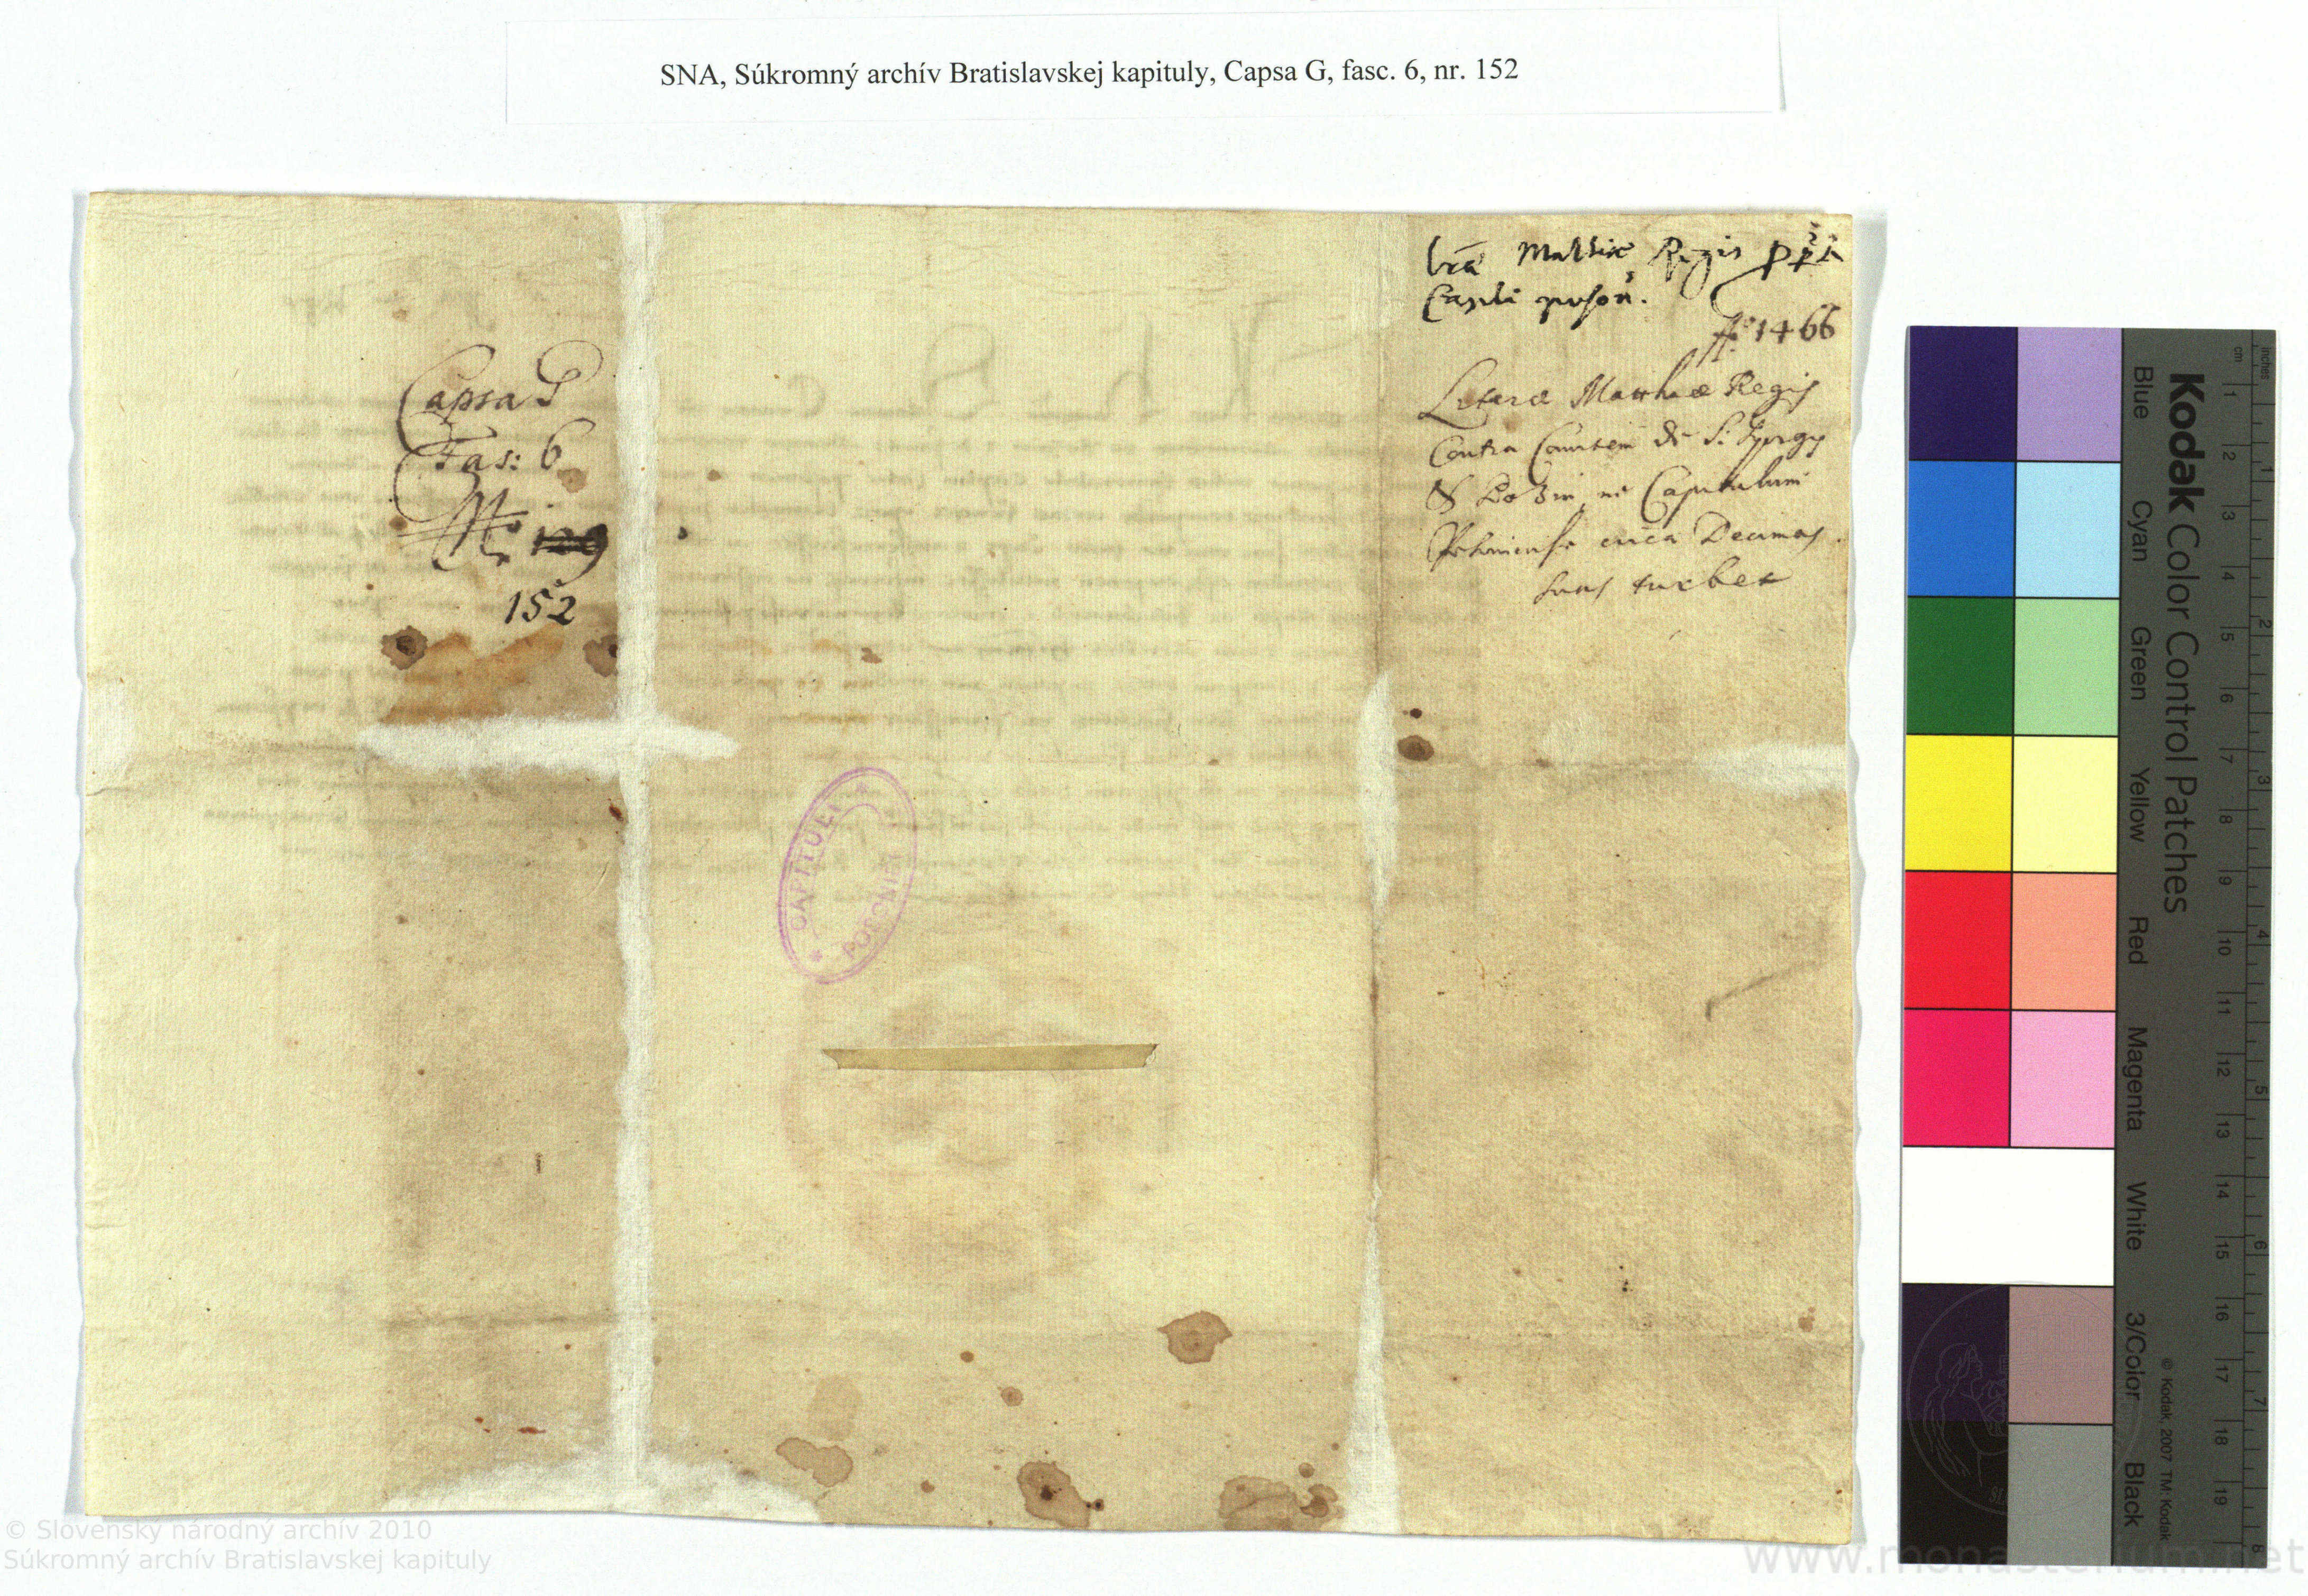 SNA, Súkromný archív Bratislavskej kapituly, Capsa G, fasc. 6, nr. 152
Capsa G
Fas: 6
No 129
152
lrae Mathie Regis
Capli poson.
Ao 1466
Literae Mathiae Regis
Contra Comitem de S: Györgÿ
& Bozin ne Capitulum
Posoniense circa Decimas
suas turbet
* CAPITULI *
POSONIEN
Kodak Color Control Patches
Blue Cyan Green Yellow Red Magenta White 3/Color Black
cm 1 2 3 4 5 6 7 8 9 10 11 12 13 14 15 16 17 18 19
inches 1 2 3 4 5 6 7 8
© Kodak, 2007 TM: Kodak
© Slovenský národný archív 2010
Súkromný archív Bratislavskej kapituly
www.monasterium.net